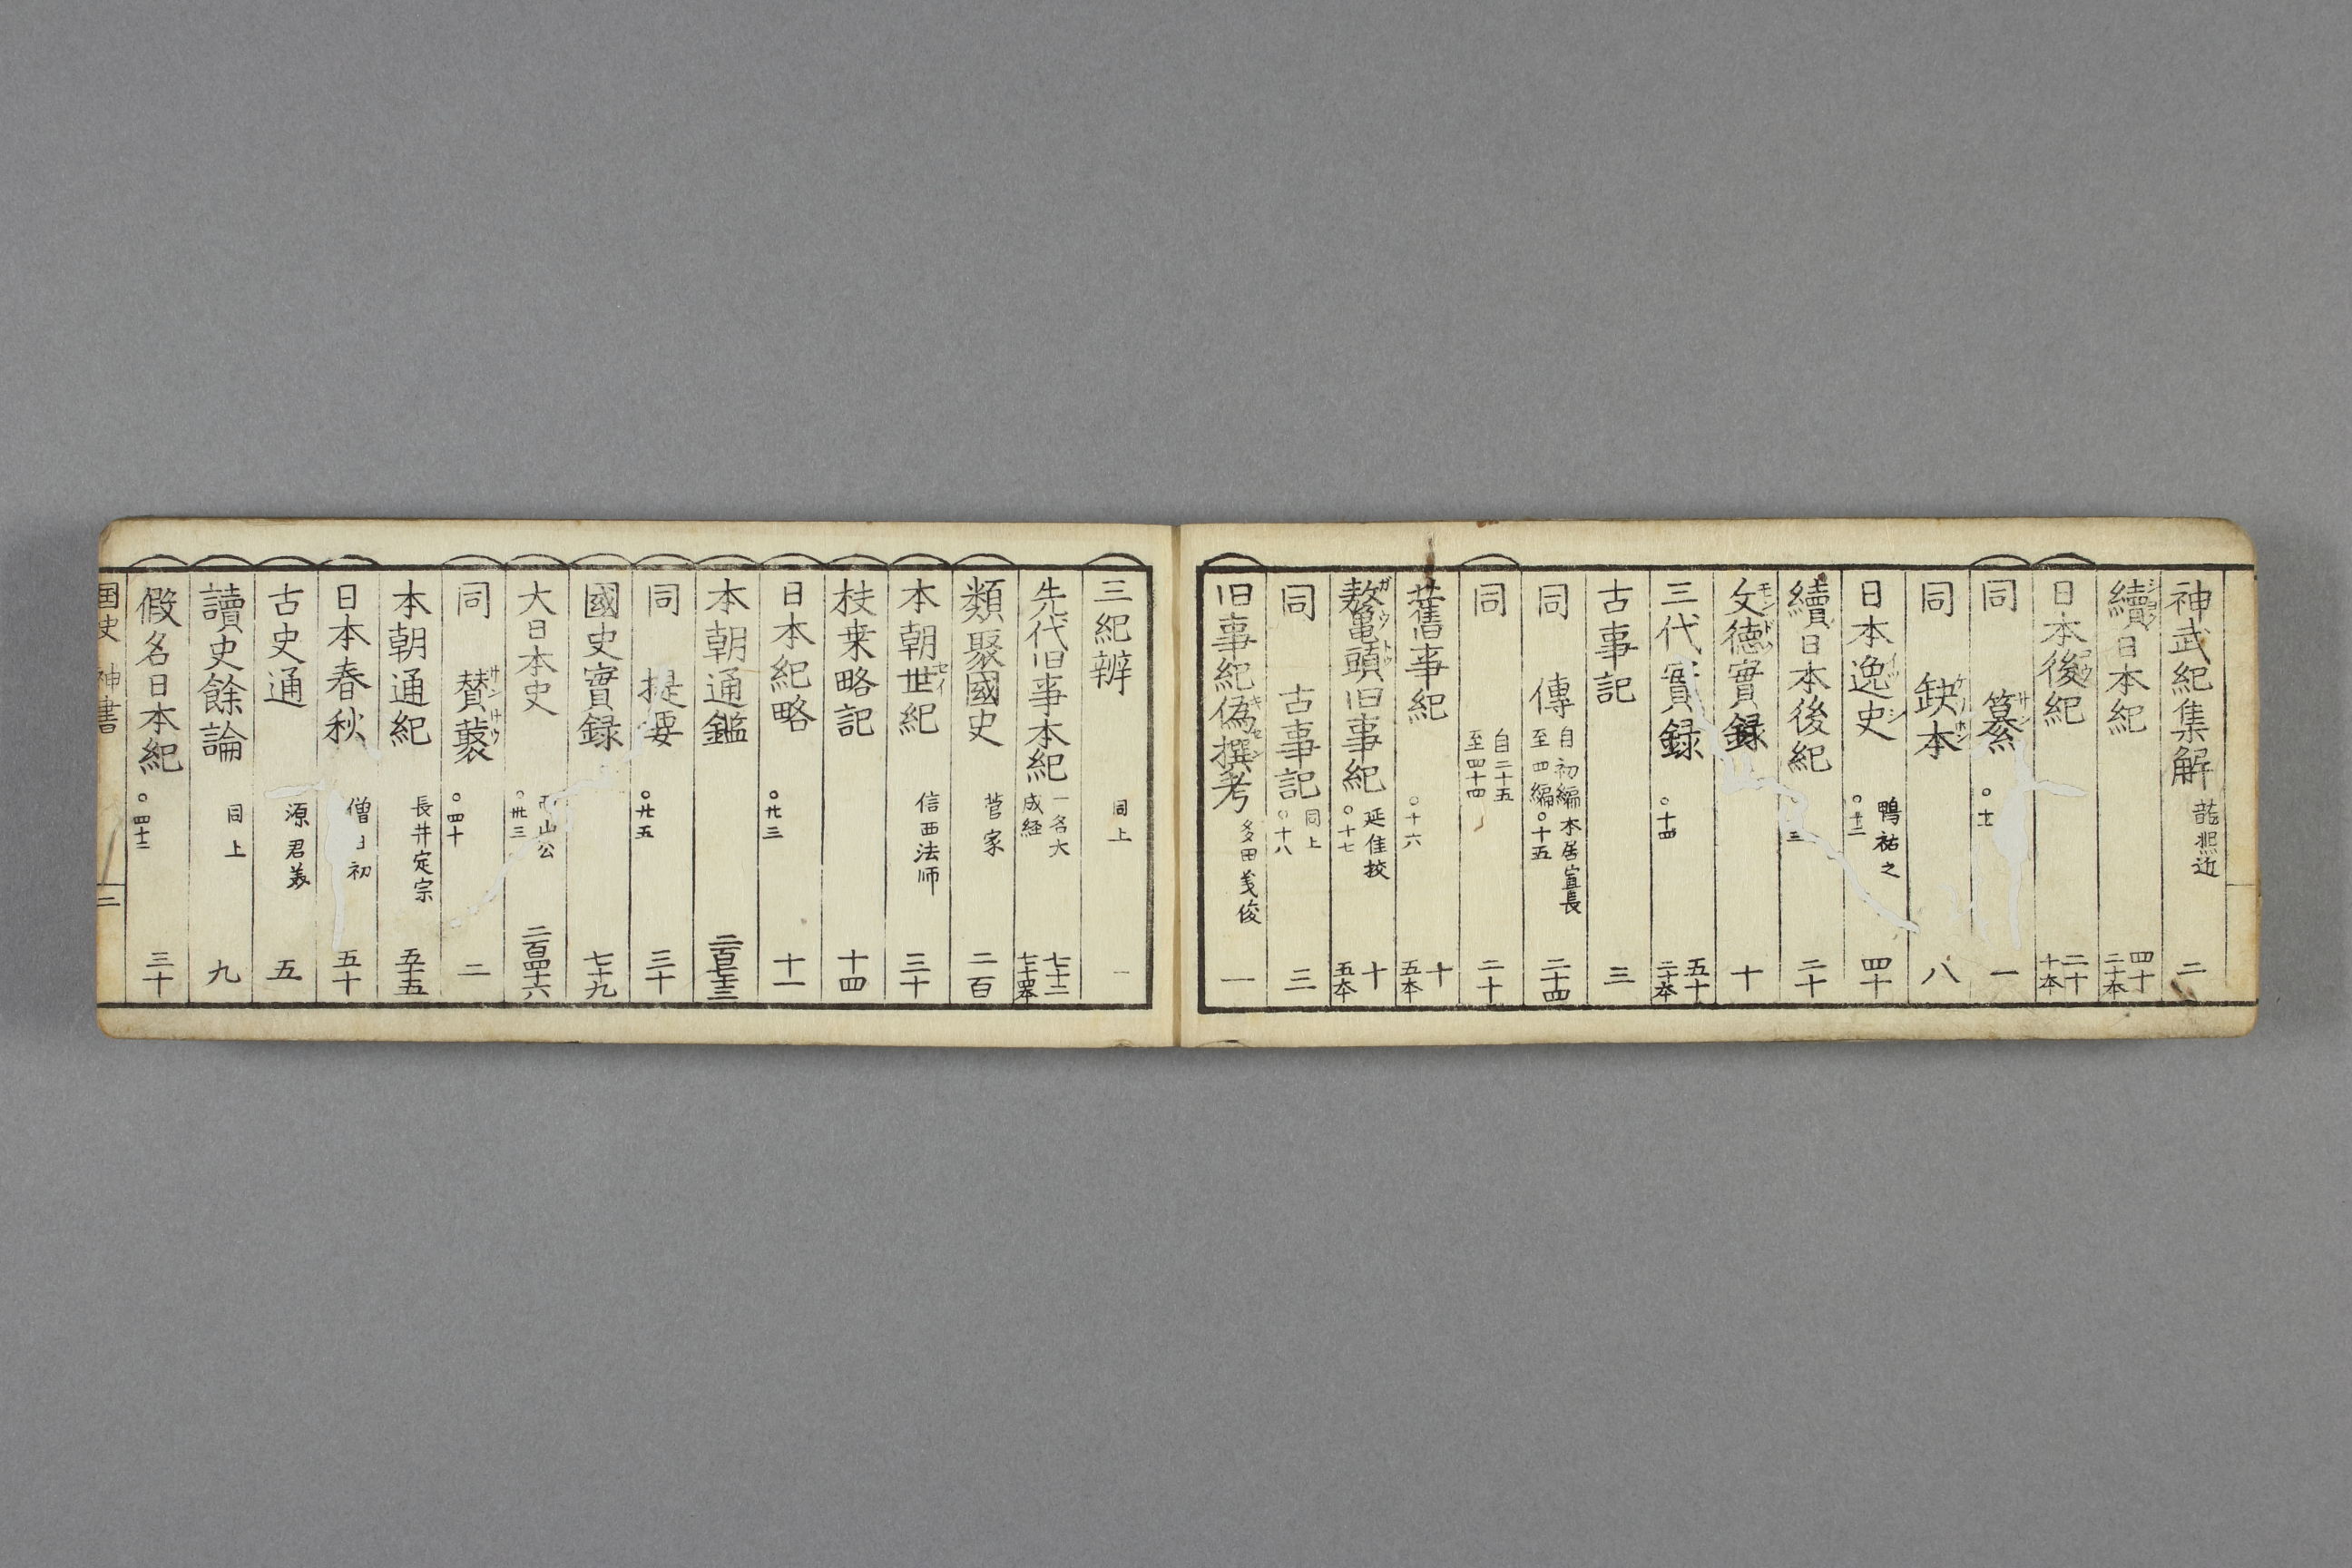 神武紀集解 龍熙近 二
續日本紀 四十 二十本
日本後紀 二十 十本
同 纂 サン 一
同 缺本 ケツホン 八
日本逸史 イツシ 鴨祐之 四十
續日本後紀 二十
文德實録 モントク 十
三代實録 ○十四 五十 二十本
古事記 三
同 傳 自初編至四編 本居宣長 ○十五 二十四
同 自二十五至四十四 二十
舊事紀 ○十六 十 五本
鼇頭旧事紀 ガウトウ 延佳挍 ○十七 十 五本
同 古事記 同上 ○十八 三
旧事紀偽撰考 ギセン 多田義俊 一
三紀辨 同上 一
先代旧事本紀 一名大成経 七十二
類聚國史 菅家 二百
本朝世紀 セイ 信西法师 三十
扶桒略記 十四
日本紀略 ○卅三 十一
本朝通鑑
同 提要 ○卅五 三十
國史實録 七十九
大日本史 山公 ○卅三 二百四十六
同 賛藂 サンサウ ○四十 二
本朝通紀 長井定宗 五十五
日本春秋 僧 初 五十
古史通 源君美 五
讀史餘論 同上 九
假名日本紀 三十
国史 神書 三